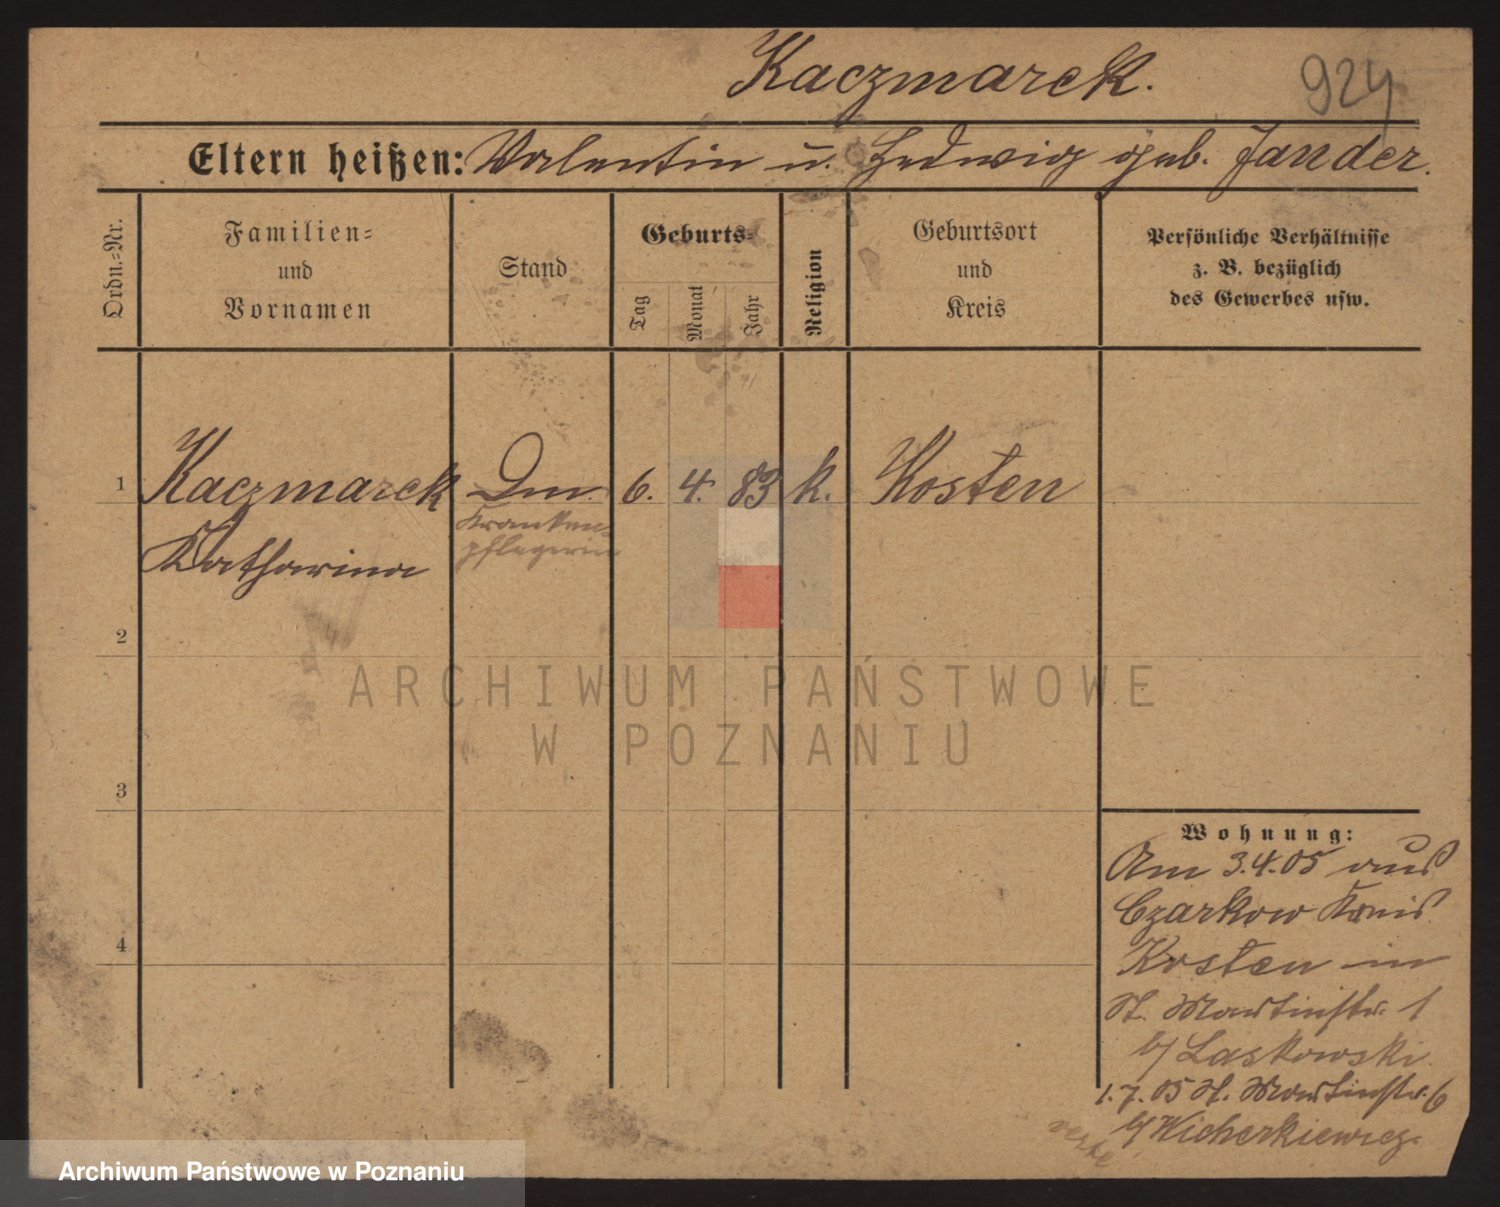 Kaczmarek.
924
Eltern heißen: Valentin u. Hedwig geb. Jander.
Ordn.-Nr.
Familien-
und
Vornamen
Stand
Geburts-
Tag
Monat
Jahr
Religion
Geburtsort
und
Kreis
Persönliche Verhältnisse
z. B. bezüglich
des Gewerbes usw.
1 Kaczmarek 6. 4. 83 k. Kosten
Kranken-
pflegerin
Katharina
2
ARCHIWUM PAŃSTWOWE
W POZNANIU
3
Wohnung:
Am 3.4.05 aus
Czarkow Kreis
Kosten in
4
St. Martinstr. 1
b/ Laskowski.
1.7.05 St. Martinstr. 6
b/ Wicherkiewicz.
Archiwum Państwowe w Poznaniu